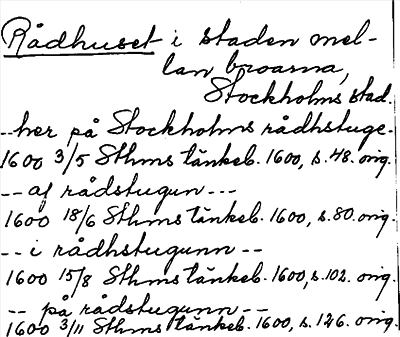 Rådhuset i staden mel-
lan broarna,
Stockholms stad.
--her på Stockholms rådhstuge.
1600 3/5 Sthms tänkeb. 1600, s. 48. orig.
-- af rådstugun ---
1600 18/6 Sthms tänkeb. 1600, s. 80. orig.
-- i rådhstugunn --
1600 15/8 Sthms tänkeb. 1600, s. 102. orig.
-- på rådstugunn --
1600 3/11 Sthms tänkeb. 1600, s. 126. orig.